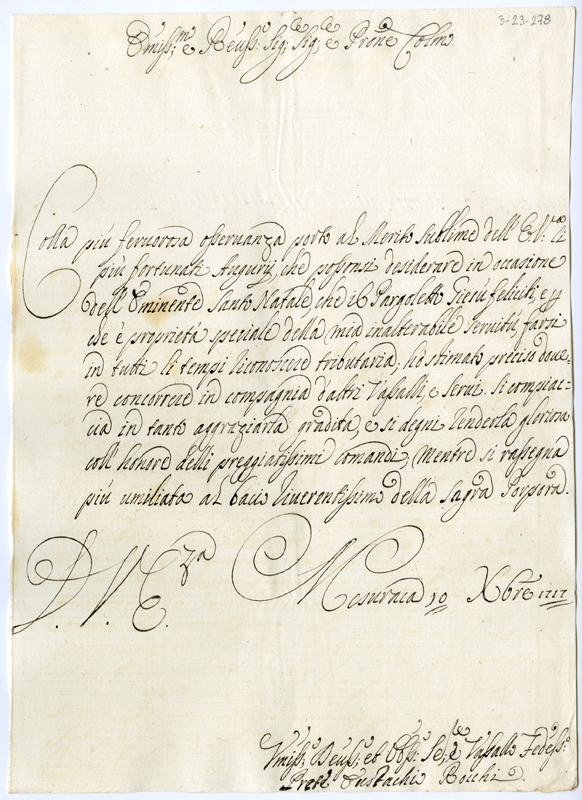 3-23-278
Emiss:mo e Reuss:o Sig:re Sig:re e Prone Colmo
Colla più feruorosa osseruanza porto al Merito sublime dell' E.V:ra li
più fortunati Augurij, che possonsi desiderare in occasione
dell' Eminente Santo Natale che il Pargoletto Giesù feliciti, e
è proprietà speciale della mia inalterabile seruitù farsi
in tutti li tempi riconoscere tributaria; hò stimato preciso doue-
re concorrere in compagnia d'altri Vassalli, e serui. Si compiac-
cia in tanto aggraziarla gradita, e si degni renderla gloriosa
coll' honore delli preggiatissimi comandi; Mentre si rassegna
più umiliata al bacio riuerentissimo della Sagra Porpora.
D. V. E.za Mesuraca 10 Xbre 1717
Vmiss:o Deuss:o et Obb: Se:re e Vassallo Fedess:o
Prete Eustachio Rocchi